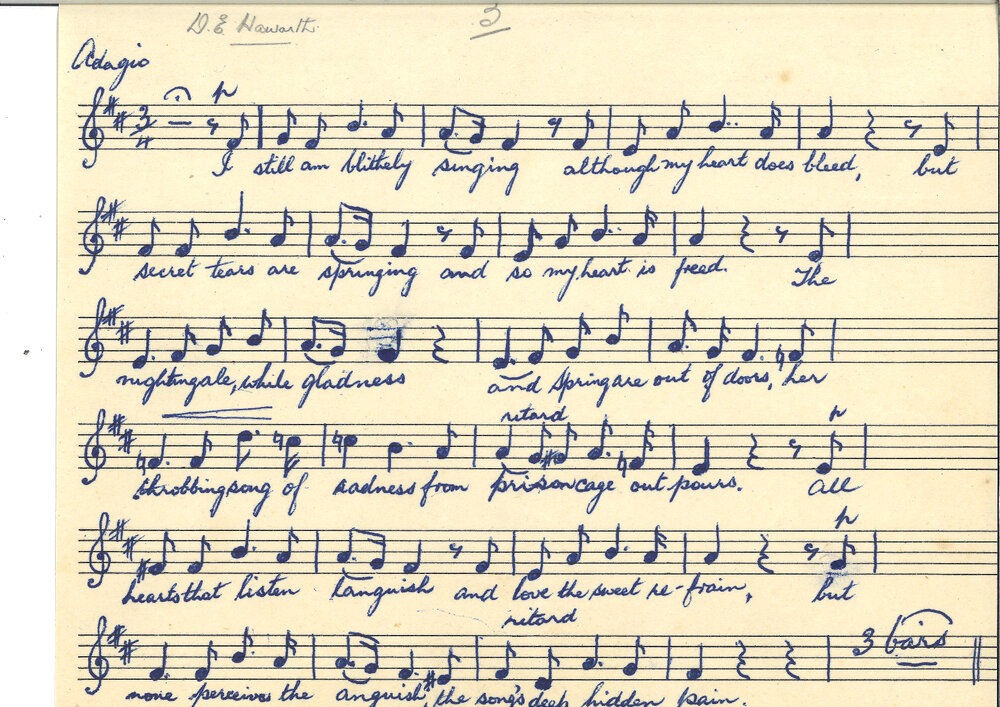 D.E Haworth. 3
Adagio
3/4 p
I still am blithely singing although my heart does bleed, but
secret tears are springing and so my heart is freed. The
nightingale, while gladness and Spring are out of doors, her
ritard p
throbbing song of sadness from prison cage out pours. All
p
hearts that listen languish and love the sweet re-frain, but
ritard
3 bars
none perceives the anguish, the song's deep hidden pain.